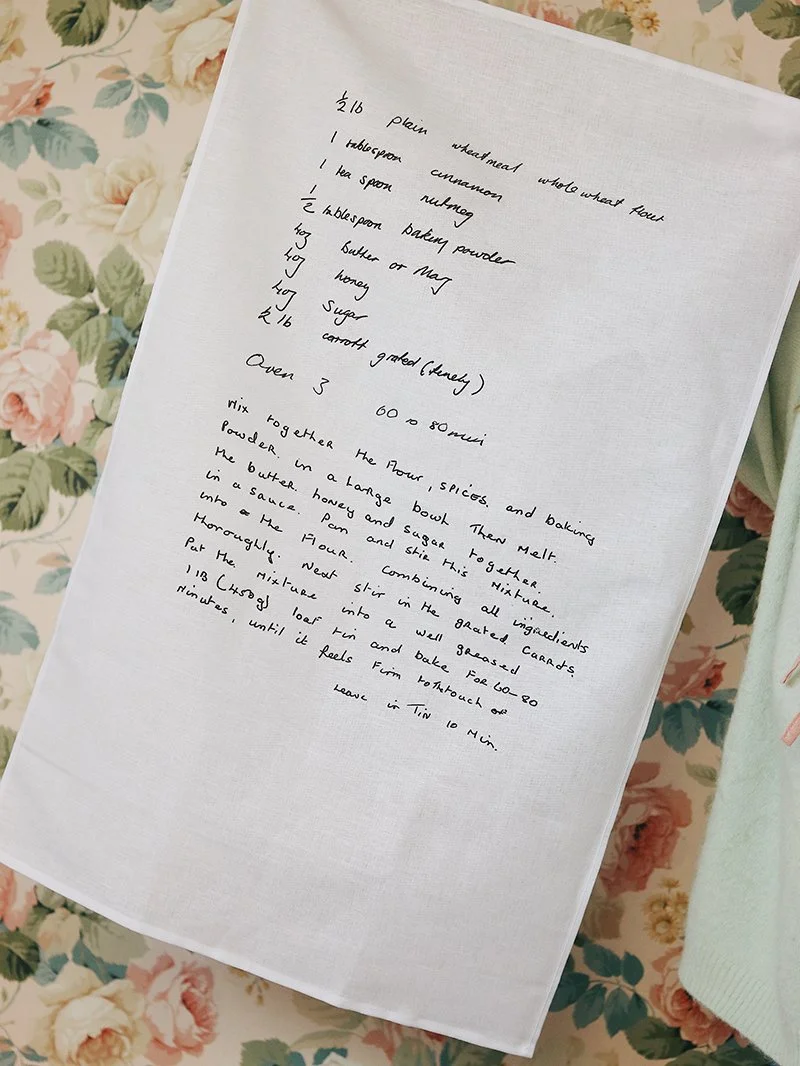 ½ lb plain wheatmeal wholewheat flour
1 tablespoon cinnamon
1 tea spoon nutmeg
½ tablespoon baking powder
4oz butter or Marg
4oz honey
4oz Sugar
½ lb carrott grated (finely)
Oven 3 60 to 80 mins
Mix together the Flour, spices. and baking
Powder. in a Large bowl. Then Melt.
the butter. honey and sugar together.
in a sauce. Pan and stir this Mixture.
into the Flour. Combining all ingredients
thoroughly. Next stir in the grated Carrots.
Put the Mixture into a well greased
1 lB (450g) loaf tin and bake For 60-80
Minutes, until it feels Firm to the touch
Leave in Tin 10 Min.